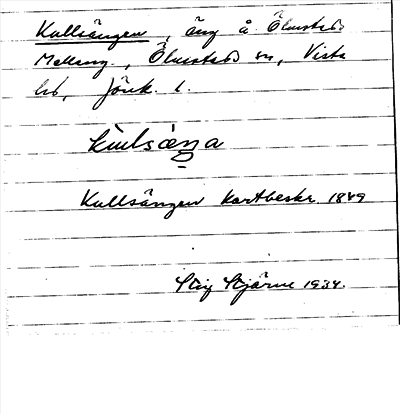 Kullsängen, äng å Ölmstads
Melleng., Ölmstads sn, Vista
hd, Jönk. l.
Kullsängen kartbeskr. 1849
Stig Stjärne 1934.